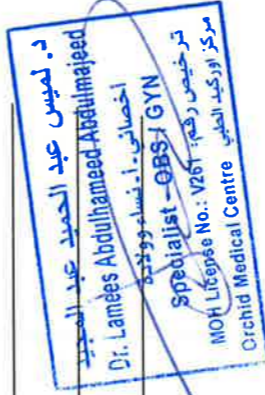 د. لميس عبد الحميد عبد المجيد
Dr. Lamees Abdulhameed Abdulmajeed
اخصائي - ا. نساء وولادة
Specialist - OBS / GYN
ترخيص رقم: V261
MOH License No.: V261
مركز اوركيد الطبي
Orchid Medical Centre